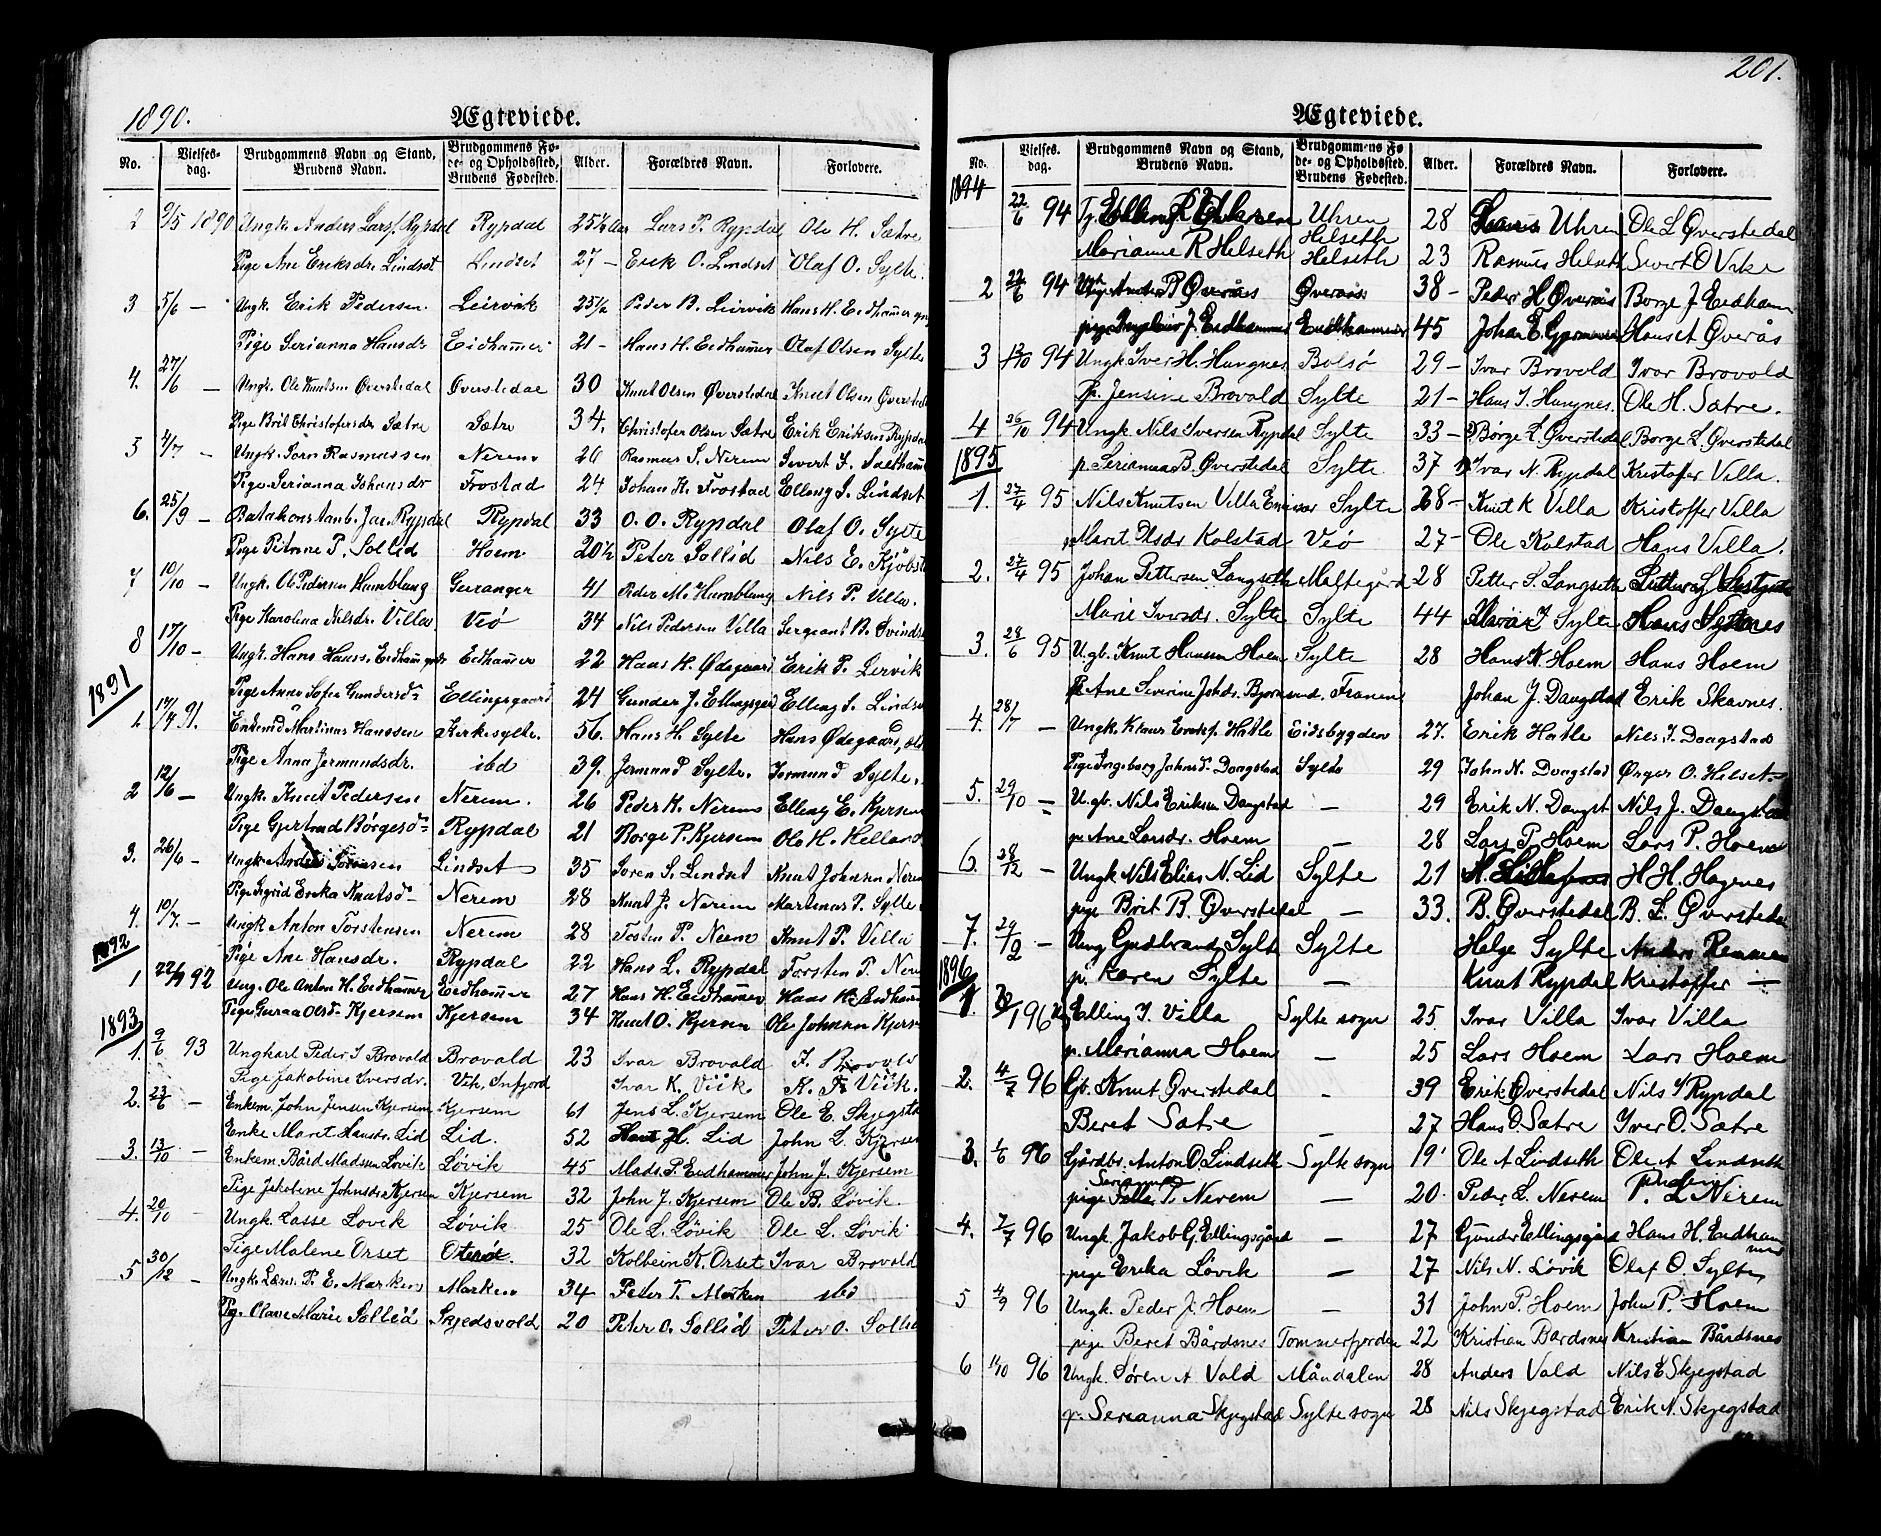 1890.
Ægteviede.
No. Vielses-dag. Brudgommens Navn og Stand, Brudens Navn. Brudgommens Fø-de- og Opholdssted, Brudens Fødested. Alder. Forældres Navn. Forlovere.
2 9/5 1890 Ungk. Anders Lars. Rypdal Rypdal 25½ Aar Lars P. Rypdal Ole H. Sætre
Pige Ane Eriksdr. Lindset Lindset 27 - Erik O. Lindset Olaf O. Sylte.
3 5/6 - Ungk. Erik Pedersen. Leirvik 25½ Peder B. Leirvik Hans H. Eidhamer
Pige Serianna Hansdr Eidhamer 21 - Hans H. Eidhamer Olaf Olsen Sylte
4. 27/6 - Ungk. Ole Knutsen Øverstedal Øverstedal 30 Knut Olsen Øverstedal Knut Olsen Øverste
Pige Brit Christofersdr Sætre Sætre 34. Christofer Olsen Sætre Erik Eriksen Rypdal
3 4/7 - Ungk. Søren Rasmussen Nerem 20 Rasmus S. Nerem Severt J.
Pige Serianna Johansdr Frostad 24 Johan K. Frostad Elling S. Lindset
6. 25/9 - Jac. Rypdal Rypdal 33 O. O. Rypdal Olaf O. Sylte
Pige Petrine P. Sollid Hoem 20½ Peter Sollid Nils E.
7 10/10 - Ungk. Ole Pedersen Humblung Geiranger 41 Peder M. Humblung Nils P. Villa.
Pige Karolina Nilsdr. Villa Veø 34 Nils Pedersen Villa Sergeant B.
8 17/10 - Ungk. Hans Hanss. Eidham Eidhamer 22 Hans H. Ødegaard Erik P. Lervik
1891
Pige Anne Sofie Gundersd. Ellingsgaard 24 Gunder J. Ellingsgrd Elling S. Lindse
1. 17/4 91. Enkemd. Martinus Hanssen Kirkesylte. 56. Hans H. Sylte Hans Ødegaard,
Pige Anna Jermundsdr. ibd 39. Jermund Sylte. Jermund Sylte.
2 12/6 - Ungk. Knut Pedersen Nerem. 26 Peder K. Nerem Elling E. Kjersem
Pige Gjertrud Børgesd. Rypdal 21 Børge P. Kjersem Ole H. Helland
3. 26/6 - Ungk. Anders Sørensen Lindset 35 Søren S. Lindset Knut Johnsen Nerem
Pige Sigrid Erika Knutsd. Nerem 28 Knut J. Nerem Martinus P. Sylte
4 10/7 - Ungk Anton Torstensen Nerem 28 Tosten P. Nerem Knut P. Villa
1892
Pige Ane Hansdr. Rypdal 22 Hans L. Rypdal Torsten P. Nere
1 22/4 92 Ung. Ole Anton H. Eidhamer Eidhamer 27 Hans H. Eidhamer Hans H. Eidhamer
1893
Pige Guraa Olsd. Kjersem Kjersem 34 Knut O. Kjersem Ole Johnsen Kjers
1. 9/6 93 Ungkarl Peder I Brovold Brovold 23 Ivar Brovold I. Brovold
Pige Jakobine Iversdr. Vik, Infjord Ivar K. Viik K. Viik.
2. 23/6 - Enkem. John Jensen Kjersem Kjersem 61 Jens L. Kjersem Ole E. Skjegsta
Enke Maret Hansdr. Lid Lid. 52 H. Lid John L. Kjerse
3. 13/10 - Enkem. Bård Madssen Løvik Løvik 45 Mads P. Eidhammer John J. Kjersem
Pige Jakobine Johnsdr Kjersem Kjersem 32 John J. Kjersem Ole B. Løvik.
4. 20/10 Ungk. Lasse Løvik Løvik 25 Ole L. Løvik Ole L. Løvik
Pige Malene Orset Oterøi. 32 Kolbein K. Orset Ivar Brovold
5 30/12 - Ungk. P. E. Morken Morken 34 Peder T. Morken ibd
Pg. Olave Marie Sollid Skjedsvold 20 Peter O. Sollid Peter O. Sollid
201.
Ægteviede.
No. Vielses-dag. Brudgommens Navn og Stand, Brudens Navn. Brudgommens Fø-de- og Opholdssted, Brudens Fødested. Alder. Forældres Navn. Forlovere.
1894
22/6 94 Elling L Uhren Uhren 28 Uhren Ole L Øverstedal
Marianne R Helseth Helseth Helseth 23 Rasmus Helseth Sivert O Vike
2 22/6 94 Anders P Øverås Øverås 38 - Peder H Øverås Borge J Eidhamm
pige J. Eidhammer Eidhammer 45 Johan E. Hans Øverås
3 12/10 94 Ungk Iver H. Hungnes Bolsø 29 - Ivar Brovold Ivar Brovold
P. Jensine Brovold Sylte 21 - Hans I. Hungnes. Ole H. Sætre.
4 26/10 94 Ungk Nils Iversen Rypdal Sylte 33 - Børge L. Øverstedal Borge L. Øverstedal
1895
p. Serianna B. Øverstedal Sylte 37 Ivar N. Rypdal Kristofer Villa.
1. 27/4 95 Nils Knutsen Villa Sylte 28 - Knut K Villa Kristoffer Villa
Marit Olsdr Kolstad Veø 27 - Ole Kolstad Hans Villa.
2. 27/4 95 Johan Pettersen Langseth Maltegård 28 Petter S. Langseth
Marie Iversdr. Sylte Sylte 44 Ivar I Sylte Hans Sylte
3. 28/6 95 Ugb. Knut Hansen Hoem Sylte 28 Hans K. Hoem Hans Hoem
P. Ane Severine Johds. Bjørnsund. Franen Johan J. Daugstad Erik Skavnes.
4. 28/7 - Ungk. Klaus Hatle Eidsbygden 27. Erik Hatle Nils J. Daagstad
Pige Ingeborg Johnsd. Daagstad Sylte 29 John N. Daagstad O. Helset
5. 29/10 - Ugb. Nils Eriksen Daugstad - 29 Erik N. Daugst Nils J. Daugstad
p. Ane Larsdr. Hoem - 28 Lars P. Hoem Lars P. Hoem
6. 28/12 - Ungk Nils Elias N. Lid Sylte 21 H H. Hagenes
pige Brit B. Øverstedal - 33. B. Øverstedal B. L. Øversteda
7. 29/12 - Ung Gudbrand Sylte Sylte Helge Sylte Anders Remmem
1896
p. Karen Sylte - Knut Rypdal Kristoffer -
1. 196 Elling I. Villa Sylte sogn 25. Ivar Villa Ivar Villa
p. Marianna Hoem - 25 Lars Hoem Lars Hoem
2. 4/2 96 Gp. Knut Øverstedal - 39 Erik Øverstedal Nils Rypdal
Beret Sætre - 27 Hans O Sætre Iver O. Sætre
3. 1/6 96 Gårdbr. Anton O Lindseth Sylte sogn 19 Ole A Lindseth Ole A Lindseth
pige Serianna P. Nerem - 20. Peder L. Nerem P. L Nerem
4. 7/7 96 Ungk. Jakob G. Ellingsgård - 27 Gunder Ellingsgård Hans H. Eidham
mer
pige Erika Løvik - 27 Nils N. Løvik Olaf O Sylte
5 4/9 96 Ungk. Peder J. Hoem - 31 John P. Hoem John P. Hoem
pige Beret Bårdsnes Tommerfjorden 22 Kristian Bardsnes Kristian Bårdsnes
6 1/10 96 Ungk. Søren A Vold Måndalen 28 Anders Vold Nils E Skjegstad
p. Serianna Skjegstad Sylte sogn 28 Nils Skjegstad Erik N. Skjegstad